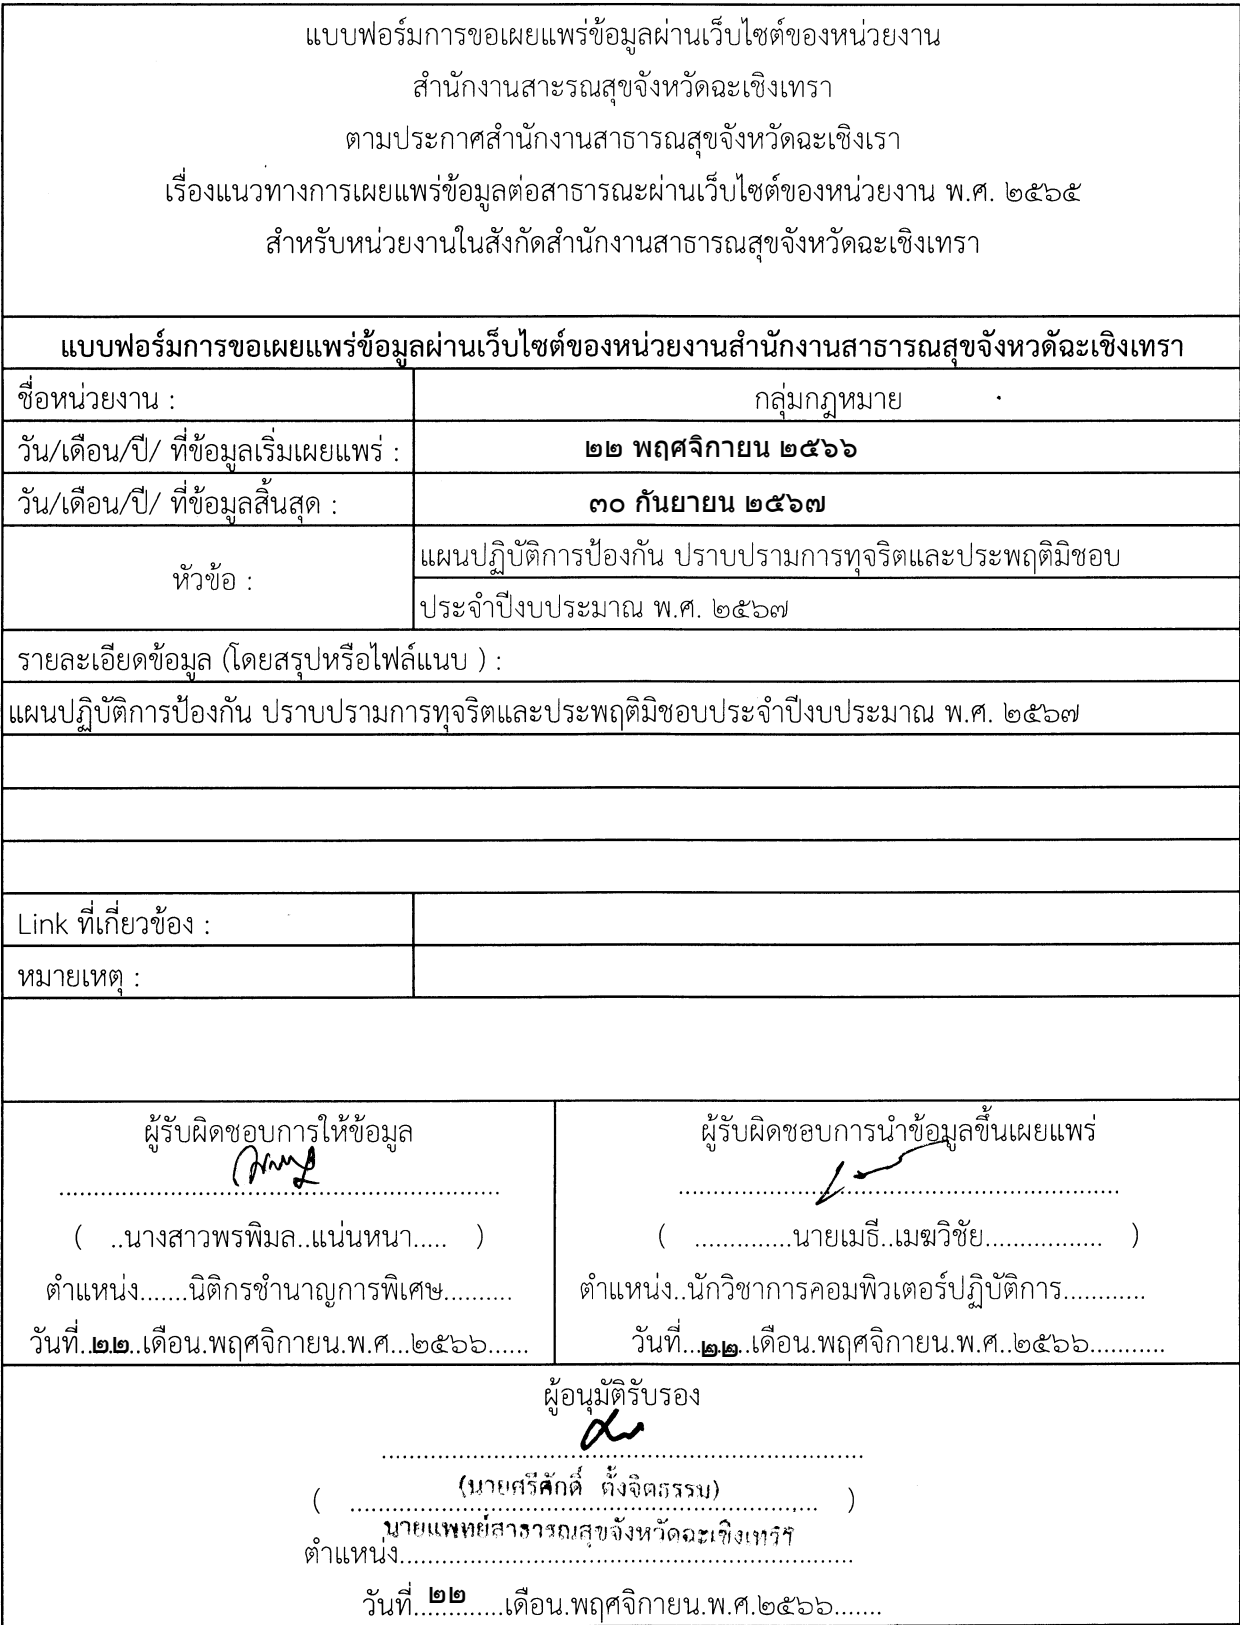 แบบฟอร์มการขอเผยแพร่ข้อมูลผ่านเว็บไซต์ของหน่วยงาน
สำนักงานสาะรณสุขจังหวัดฉะเชิงเทรา
ตามประกาศสำนักงานสาธารณสุขจังหวัดฉะเชิงเรา
เรื่องแนวทางการเผยแพร่ข้อมูลต่อสาธารณะผ่านเว็บไซต์ของหน่วยงาน พ.ศ. ๒๕๖๕
สำหรับหน่วยงานในสังกัดสำนักงานสาธารณสุขจังหวัดฉะเชิงเทรา
แบบฟอร์มการขอเผยแพร่ข้อมูลผ่านเว็บไซต์ของหน่วยงานสำนักงานสาธารณสุขจังหวดัฉะเชิงเทรา
ชื่อหน่วยงาน : กลุ่มกฎหมาย
วัน/เดือน/ปี/ ที่ข้อมูลเริ่มเผยแพร่ : ๒๒ พฤศจิกายน ๒๕๖๖
วัน/เดือน/ปี/ ที่ข้อมูลสิ้นสุด : ๓๐ กันยายน ๒๕๖๗
หัวข้อ : แผนปฏิบัติการป้องกัน ปราบปรามการทุจริตและประพฤติมิชอบ
ประจำปีงบประมาณ พ.ศ. ๒๕๖๗
รายละเอียดข้อมูล (โดยสรุปหรือไฟล์แนบ ) :
แผนปฏิบัติการป้องกัน ปราบปรามการทุจริตและประพฤติมิชอบประจำปีงบประมาณ พ.ศ. ๒๕๖๗
Link ที่เกี่ยวข้อง :
หมายเหตุ :
ผู้รับผิดชอบการให้ข้อมูล
( ..นางสาวพรพิมล..แน่นหนา..... )
ตำแหน่ง.......นิติกรชำนาญการพิเศษ..........
วันที่..๒๒..เดือน.พฤศจิกายน.พ.ศ...๒๕๖๖......
ผู้รับผิดชอบการนำข้อมูลขึ้นเผยแพร่
( ..............นายเมธี..เมฆวิชัย................. )
ตำแหน่ง..นักวิชาการคอมพิวเตอร์ปฏิบัติการ............
วันที่...๒๒..เดือน.พฤศจิกายน.พ.ศ..๒๕๖๖...........
ผู้อนุมัติรับรอง
(นายศรีศักดิ์ ตั้งจิตธรรม)
นายแพทย์สาธารณสุขจังหวัดฉะเชิงเทรา
ตำแหน่ง..................................................................
วันที่..๒๒......เดือน.พฤศจิกายน.พ.ศ.๒๕๖๖.......